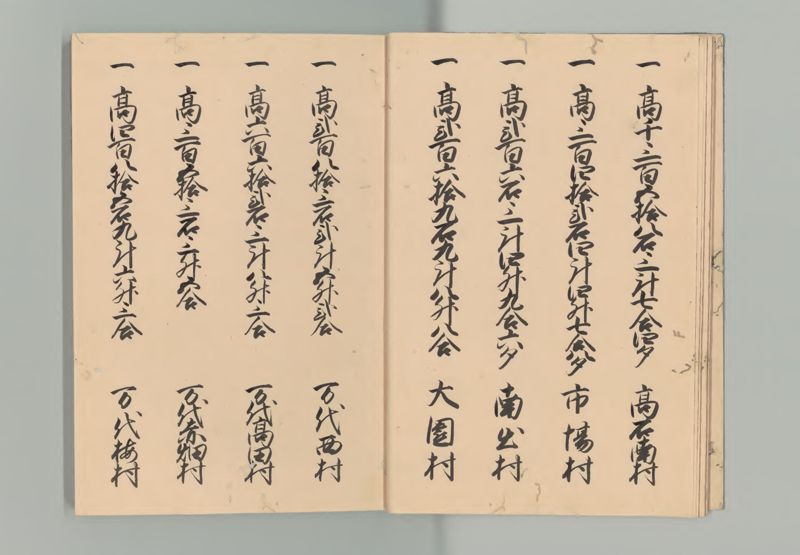 一 高千三百五拾八石三斗七合四夕 高石南村
一 高三百四拾弐石四斗四升七合八夕 市場村
一 高弐百六石三斗四升九合六夕 南出村
一 高弐百六拾九石九斗八升八合 大園村
一 高弐百八拾三石弐斗五升弐合 万代西村
一 高六百六拾弐石三斗八升三合 万代高田村
一 高三百五拾三石三升五合 万代赤畑村
一 高四百八拾五石九斗六升三合 万代梅村